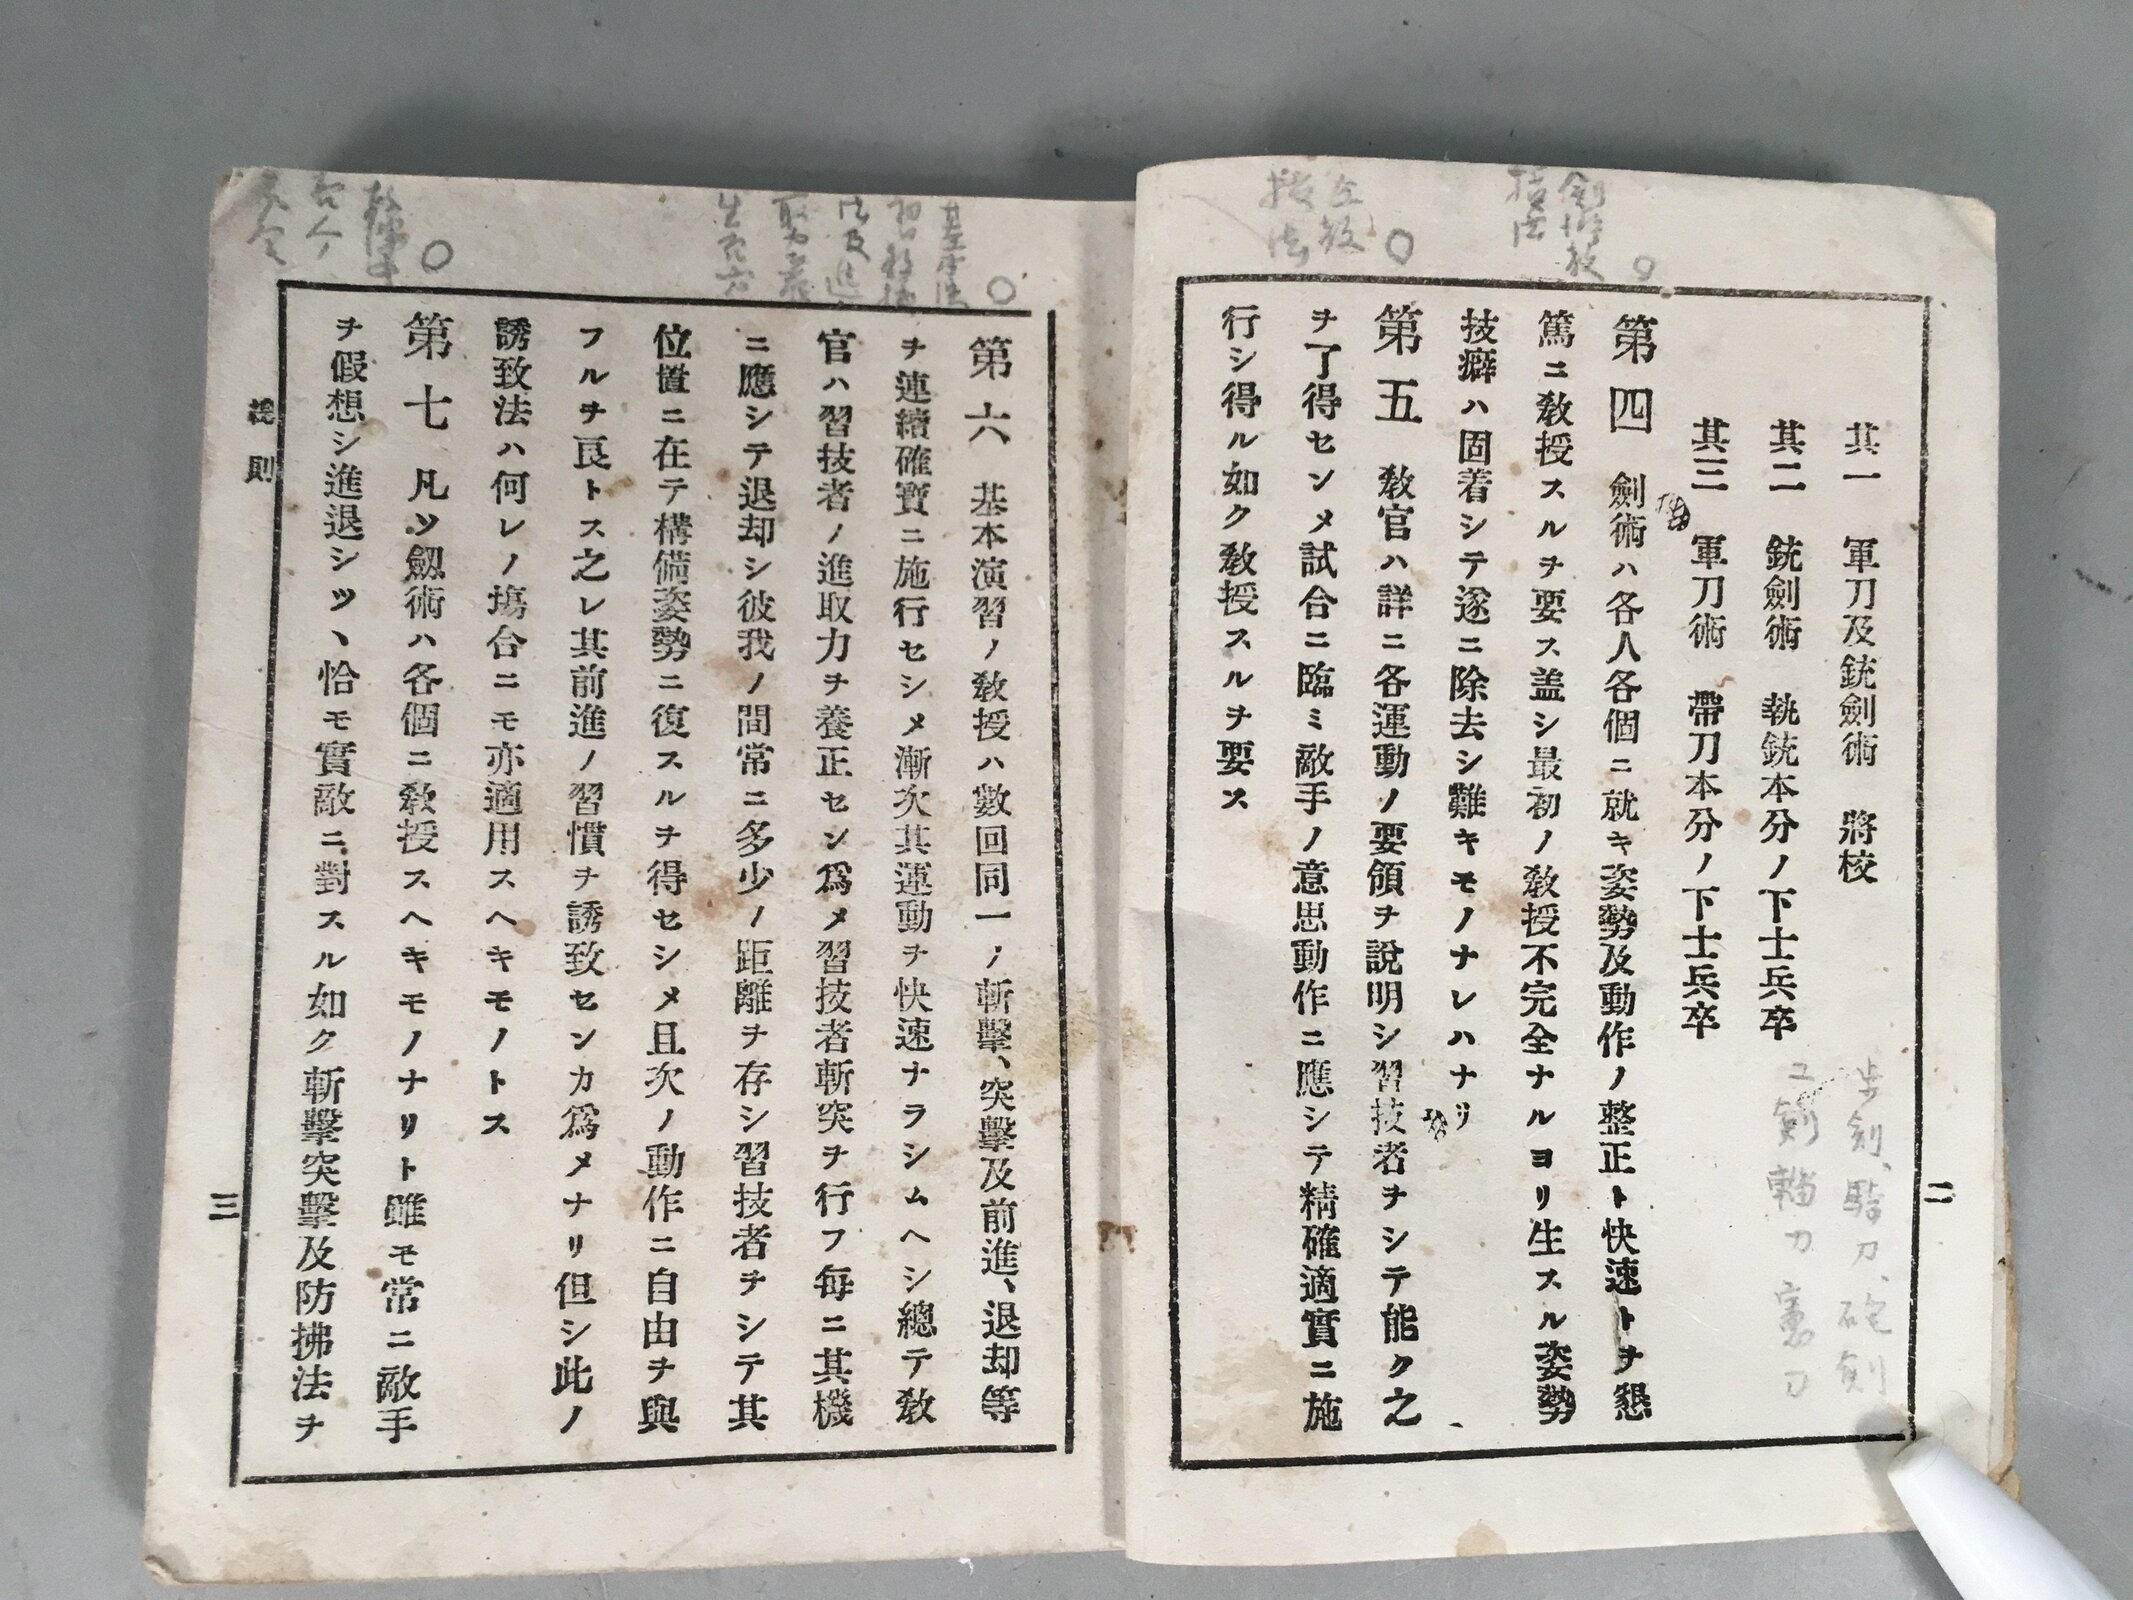 其一　軍刀及銃劍術　將校
其二　銃劍術　執銃本分ノ下士兵卒
其三　軍刀術　帶刀本分ノ下士兵卒
第四　劍術ハ各人各個ニ就キ姿勢及動作ノ整正ト快速トヲ懇
篤ニ敎授スルヲ要ス盖シ最初ノ敎授不完全ナルヨリ生スル姿勢
技癖ハ固着シテ遂ニ除去シ難キモノナレハナリ
第五　敎官ハ詳ニ各運動ノ要領ヲ說明シ習技者ヲシテ能ク之
ヲ了得セシメ試合ニ臨ミ敵手ノ意思動作ニ應シテ精確適實ニ施
行シ得ル如ク敎授スルヲ要ス
二
歩剣、騎刀、砲剣
工剣輜刀憲刀
剣術教
授法
第六　基本演習ノ敎授ハ數回同一ノ斬擊、突擊及前進、退却等
ヲ連續確實ニ施行セシメ漸次其運動ヲ快速ナラシムヘシ總テ敎
官ハ習技者ノ進取力ヲ養正セン爲メ習技者斬突ヲ行フ每ニ其機
ニ應シテ退却シ彼我ノ間常ニ多少ノ距離ヲ存シ習技者ヲシテ其
位置ニ在テ構備姿勢ニ復スルヲ得セシメ且次ノ動作ニ自由ヲ與
フルヲ良トス之レ其前進ノ習慣ヲ誘致センカ爲メナリ但シ此ノ
誘致法ハ何レノ塲合ニモ亦適用スヘキモノトス
第七　凡ソ劒術ハ各個ニ敎授スヘキモノナリト雖モ常ニ敵手
ヲ假想シ進退シツヽ恰モ實敵ニ對スル如ク斬擊突擊及防拂法ヲ
總則
三